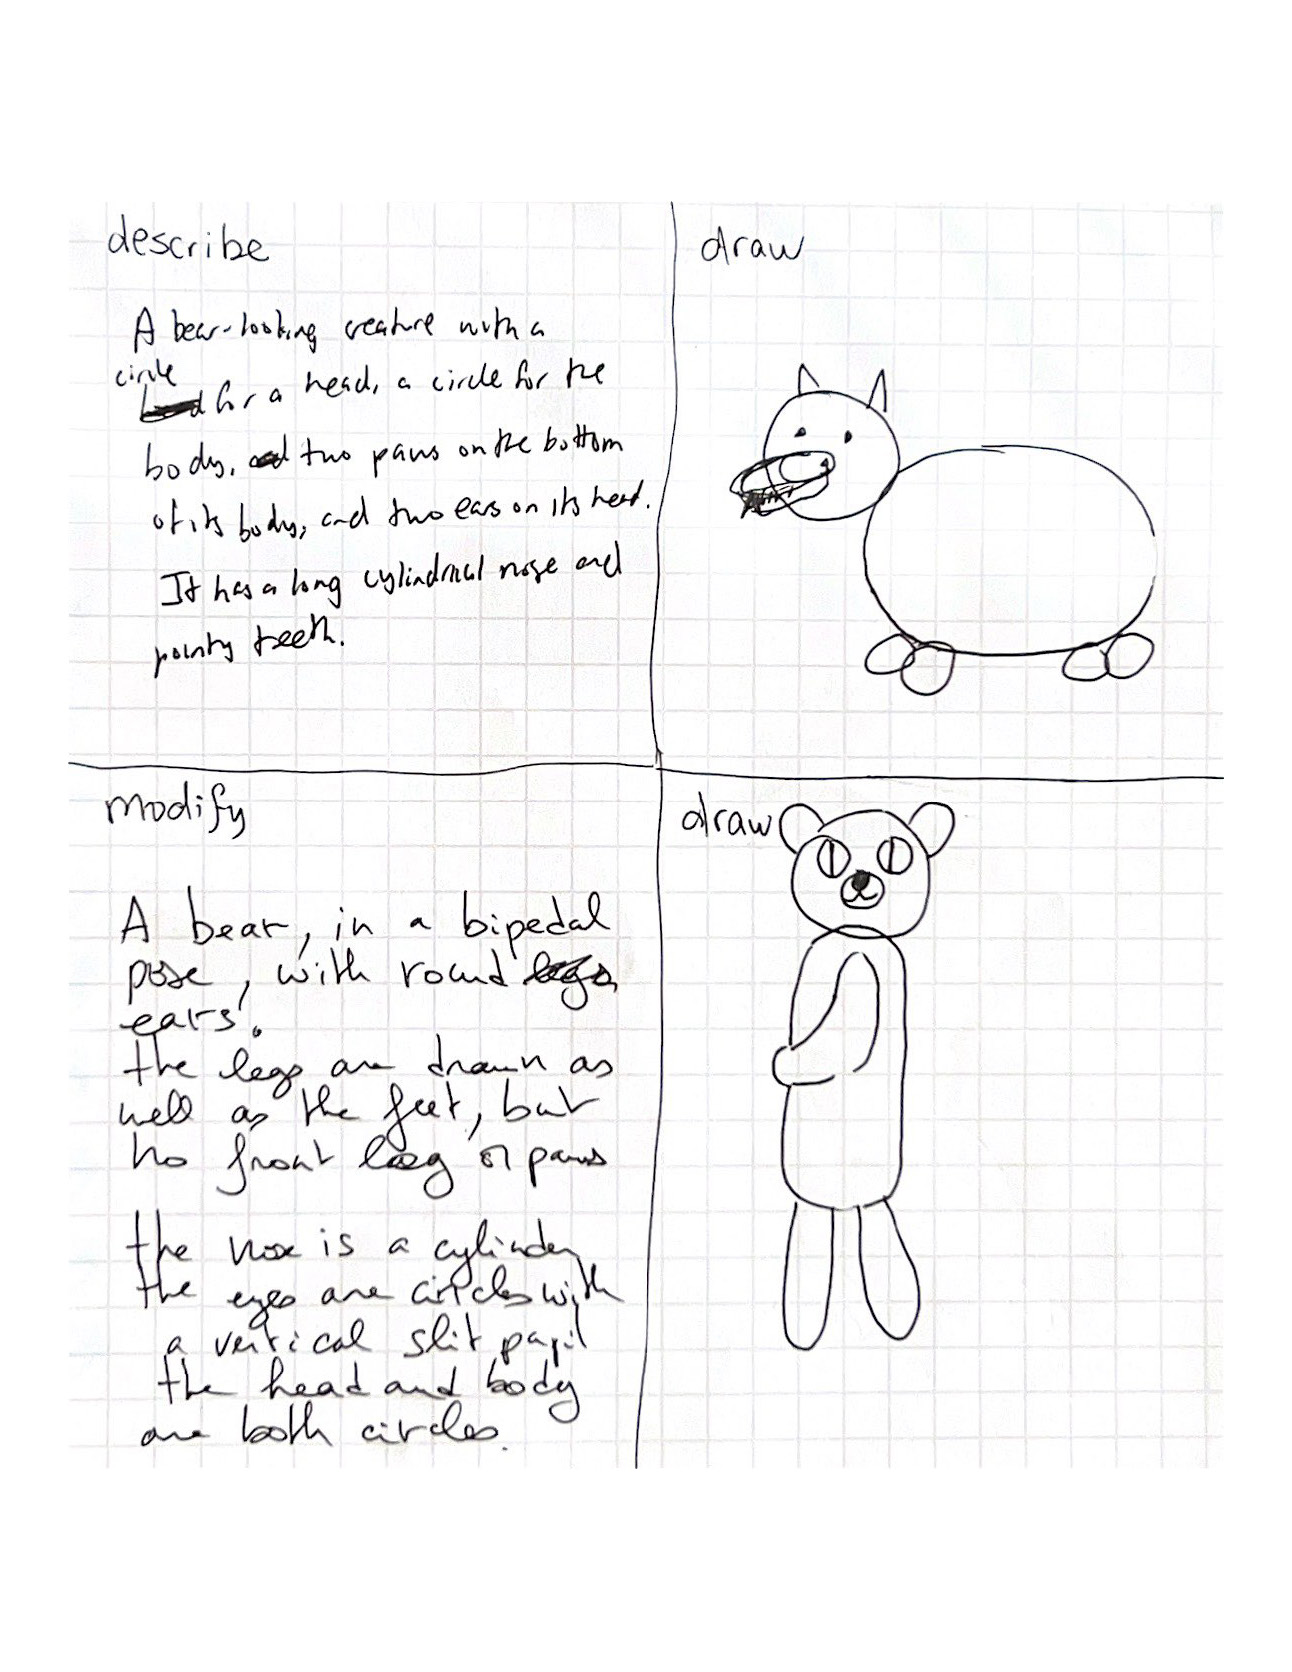 describe
A bear-looking creature with a
circle
for a head, a circle for the
body, and two paws on the bottom
of its body, and two ears on its head.
It has a long cylindrical nose and
pointy teeth.
draw
modify
A bear, in a bipedal
pose, with round legs
ears.
the legs are drawn as
well as the feet, but
no front leg or paws
the nose is a cylinder
the eyes are circles with
a vertical slit pupil
the head and body
are both circles.
draw